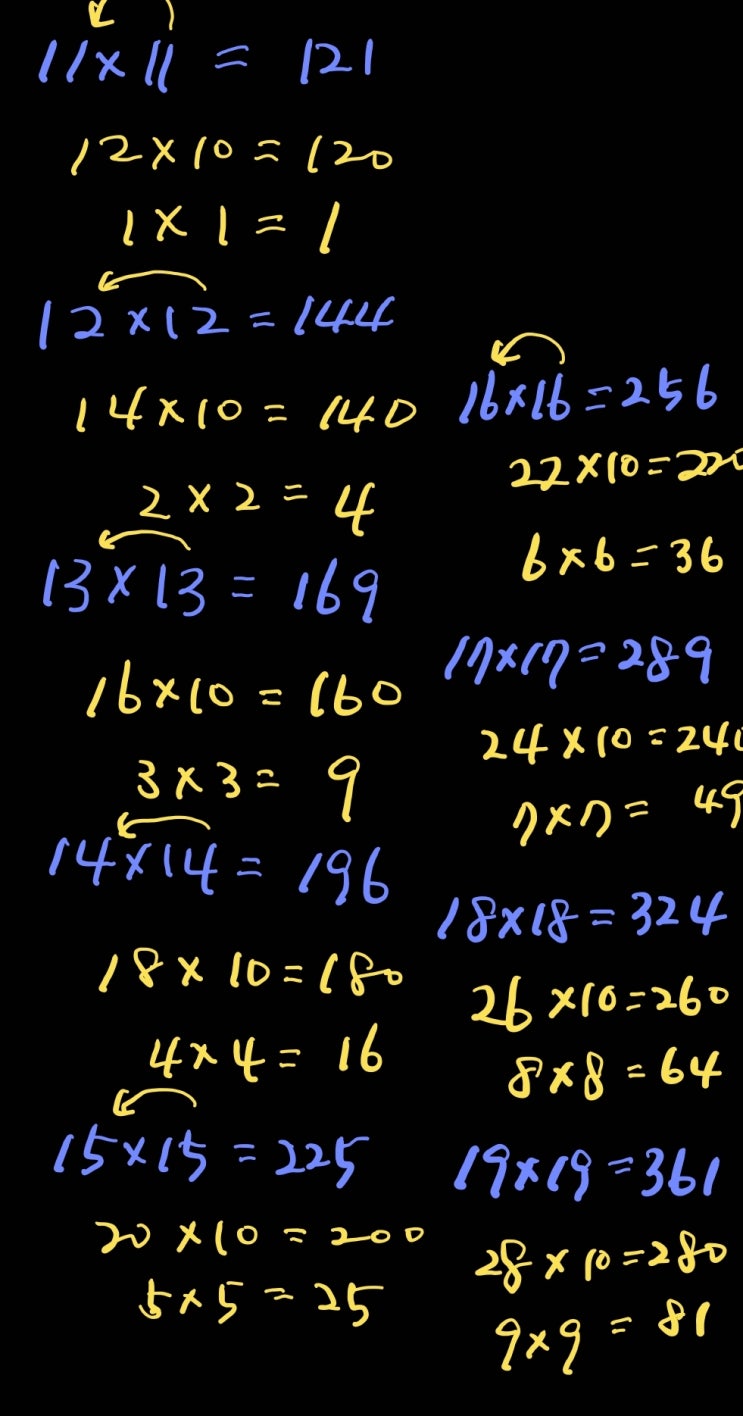 11×11 = 121
12×10 = 120
1×1 = 1
12×12 = 144
14×10 = 140
2×2 = 4
13×13 = 169
16×10 = 160
3×3 = 9
14×14 = 196
18×10 = 180
4×4 = 16
15×15 = 225
20×10 = 200
5×5 = 25
16×16 = 256
22×10 = 220
6×6 = 36
17×17 = 289
24×10 = 240
7×7 = 49
18×18 = 324
26×10 = 260
8×8 = 64
19×19 = 361
28×10 = 280
9×9 = 81